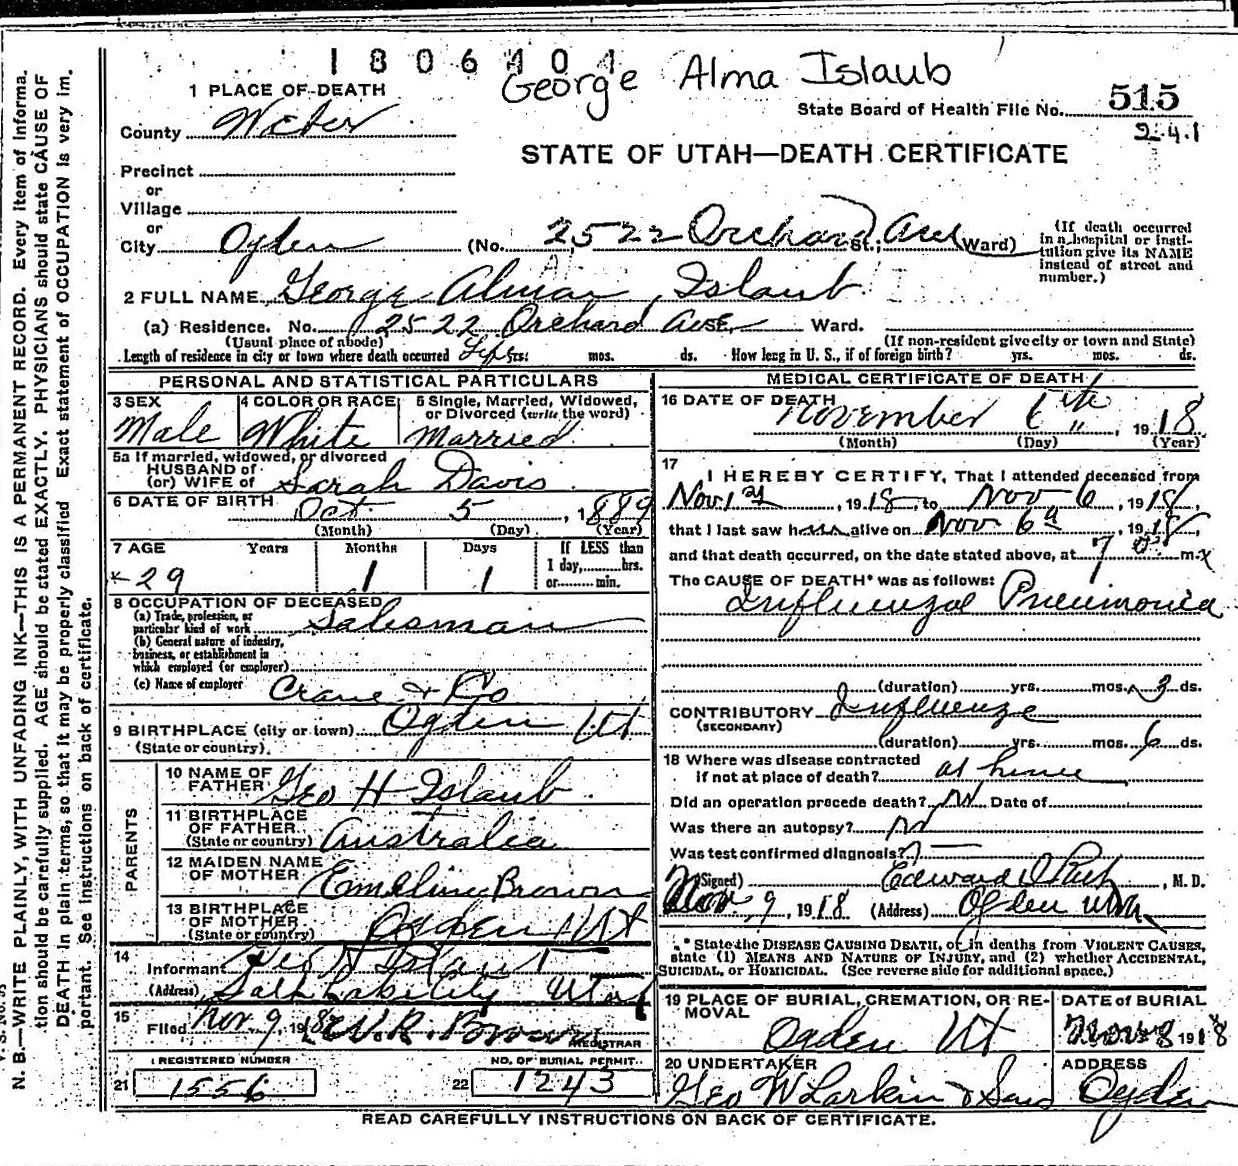 1806404
George Alma Islaub
1 PLACE OF DEATH
State Board of Health File No. 515
241
County Weber
STATE OF UTAH—DEATH CERTIFICATE
Precinct
or
Village
or
City Ogden (No. 2522 Orchard St.; Ave Ward)
(If death occurred in a hospital or institution give its NAME instead of street and number.)
2 FULL NAME George Alma Islaub
(a) Residence. No. 2522 Orchard Ave St., Ward.
(Usual place of abode) (If non-resident give city or town and State)
Length of residence in city or town where death occurred Life yrs. mos. ds. How long in U. S., if of foreign birth? yrs. mos. ds.
PERSONAL AND STATISTICAL PARTICULARS
3 SEX Male
4 COLOR OR RACE White
5 Single, Married, Widowed, or Divorced (write the word) Married
5a If married, widowed, or divorced
HUSBAND of
(or) WIFE of Sarah Davis
6 DATE OF BIRTH Oct. 5, 1889
(Month) (Day) (Year)
7 AGE Years Months Days If LESS than
1 day, hrs.
29 1 1 or min.
8 OCCUPATION OF DECEASED
(a) Trade, profession, or
particular kind of work Salesman
(b) General nature of industry,
business, or establishment in
which employed (or employer)
(c) Name of employer Crane & Co
9 BIRTHPLACE (city or town) Ogden Ut
(State or country)
PARENTS
10 NAME OF
FATHER Geo H Islaub
11 BIRTHPLACE
OF FATHER
(State or country) Australia
12 MAIDEN NAME
OF MOTHER Emeline Brown
13 BIRTHPLACE
OF MOTHER
(State or country) Ogden Ut
14
Informant Geo H Islaub
(Address) Salt Lake City Utah
15
Filed Nov. 9, 1918 Brown
REGISTRAR
REGISTERED NUMBER NO. OF BURIAL PERMIT
21 1556 22 1243
MEDICAL CERTIFICATE OF DEATH
16 DATE OF DEATH
November 6th, 1918
(Month) (Day) (Year)
17
I HEREBY CERTIFY, That I attended deceased from
Nov 1st, 1918, to Nov 6, 1918,
that I last saw him alive on Nov 6th, 1918,
and that death occurred, on the date stated above, at 7 m.
The CAUSE OF DEATH* was as follows:
Influenzal Pneumonia
(duration) yrs. mos. 3 ds.
CONTRIBUTORY Influenza
(SECONDARY)
(duration) yrs. mos. 6 ds.
18 Where was disease contracted
if not at place of death? at home
Did an operation precede death? No Date of
Was there an autopsy? No
Was test confirmed diagnosis?
(Signed) Edward I Rich, M. D.
Nov. 9, 1918 (Address) Ogden Utah
* State the DISEASE CAUSING DEATH, or in deaths from VIOLENT CAUSES,
state (1) MEANS AND NATURE OF INJURY, and (2) whether ACCIDENTAL,
SUICIDAL, or HOMICIDAL. (See reverse side for additional space.)
19 PLACE OF BURIAL, CREMATION, OR REMOVAL
Ogden Ut
DATE of BURIAL
Nov 8 1918
20 UNDERTAKER
Geo W Larkin & Sons
ADDRESS
Ogden
READ CAREFULLY INSTRUCTIONS ON BACK OF CERTIFICATE.
N. B.—WRITE PLAINLY, WITH UNFADING INK—THIS IS A PERMANENT RECORD. Every item of informa-
tion should be carefully supplied. AGE should be stated EXACTLY. PHYSICIANS should state CAUSE OF
DEATH in plain terms, so that it may be properly classified. Exact statement of OCCUPATION is very im-
portant. See instructions on back of certificate.